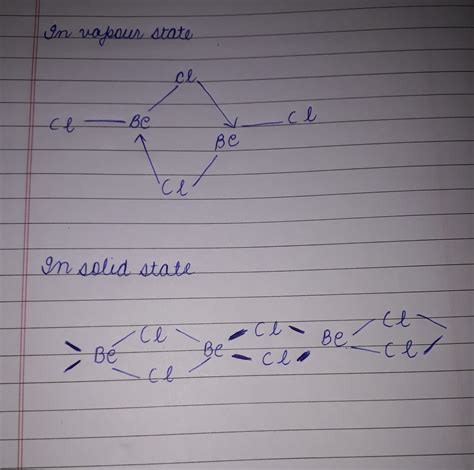 In vapour state
Cl
Cl Be Cl
Be
Cl
In solid state
Cl Cl Be Cl
Be Be
Cl Cl Cl